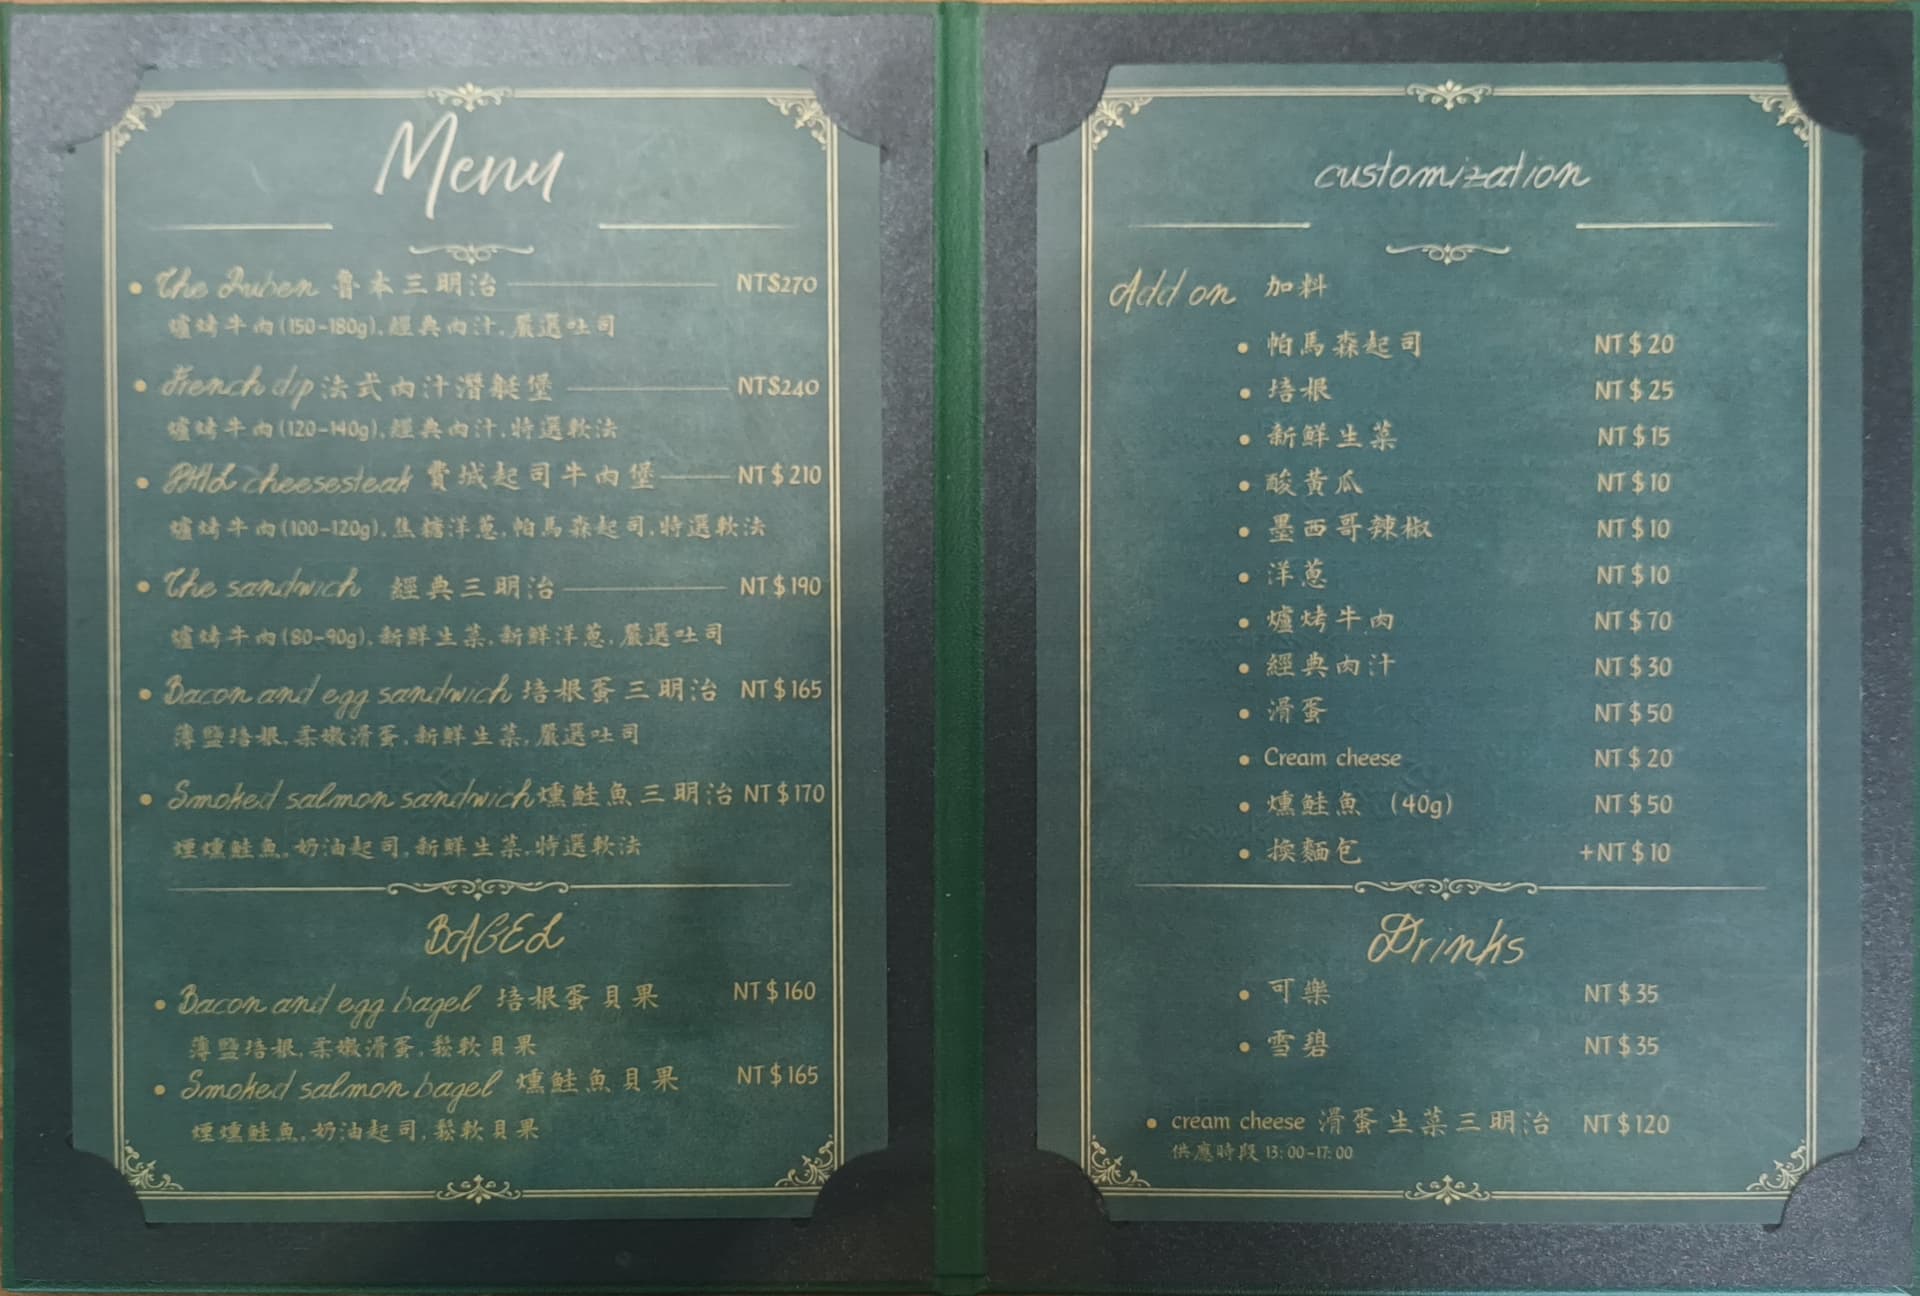 Menu
The Ruben 魯本三明治 NT$270
爐烤牛肉(150-180g),經典肉汁,嚴選吐司
French dip 法式肉汁潛艇堡 NT$240
爐烤牛肉(120-140g),經典肉汁,特選軟法
PHIL cheesesteak 費城起司牛肉堡 NT$210
爐烤牛肉(100-120g),焦糖洋蔥,帕馬森起司,特選軟法
The sandwich 經典三明治 NT$190
爐烤牛肉(80-90g),新鮮生菜,新鮮洋蔥,嚴選吐司
Bacon and egg sandwich 培根蛋三明治 NT$165
薄鹽培根,柔嫩滑蛋,新鮮生菜,嚴選吐司
Smoked salmon sandwich 燻鮭魚三明治 NT$170
煙燻鮭魚,奶油起司,新鮮生菜,特選軟法
BAGEL
Bacon and egg bagel 培根蛋貝果 NT$160
薄鹽培根,柔嫩滑蛋,鬆軟貝果
Smoked salmon bagel 燻鮭魚貝果 NT$165
煙燻鮭魚,奶油起司,鬆軟貝果
customization
Add on 加料
帕馬森起司 NT$20
培根 NT$25
新鮮生菜 NT$15
酸黃瓜 NT$10
墨西哥辣椒 NT$10
洋蔥 NT$10
爐烤牛肉 NT$70
經典肉汁 NT$30
滑蛋 NT$50
Cream cheese NT$20
燻鮭魚 (40g) NT$50
換麵包 +NT$10
Drinks
可樂 NT$35
雪碧 NT$35
cream cheese 滑蛋生菜三明治 NT$120
供應時段 13:00-17:00